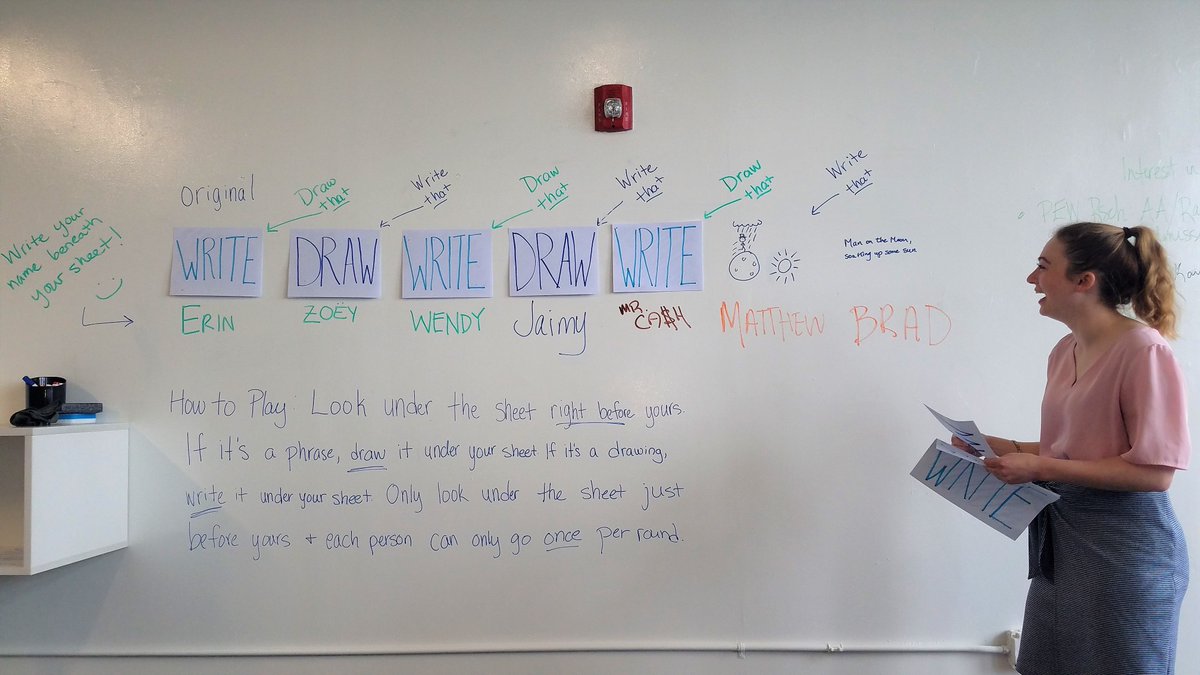 Original
Draw
that
Write
that
Draw
that
Write
that
Draw
that
Write
that
Write your
name beneath
your sheet!
WRITE
DRAW
WRITE
DRAW
WRITE
Man on the Moon,
soaking up some sun.
ERIN
ZOËY
WENDY
Jaimy
MR.
CA$H
MATTHEW
BRAD
How to Play: Look under the sheet right before yours.
If it's a phrase, draw it under your sheet If it's a drawing,
write it under your sheet. Only look under the sheet just
before yours + each person can only go once per round.
Interest in
PEW Rsch AA/R
WRITE